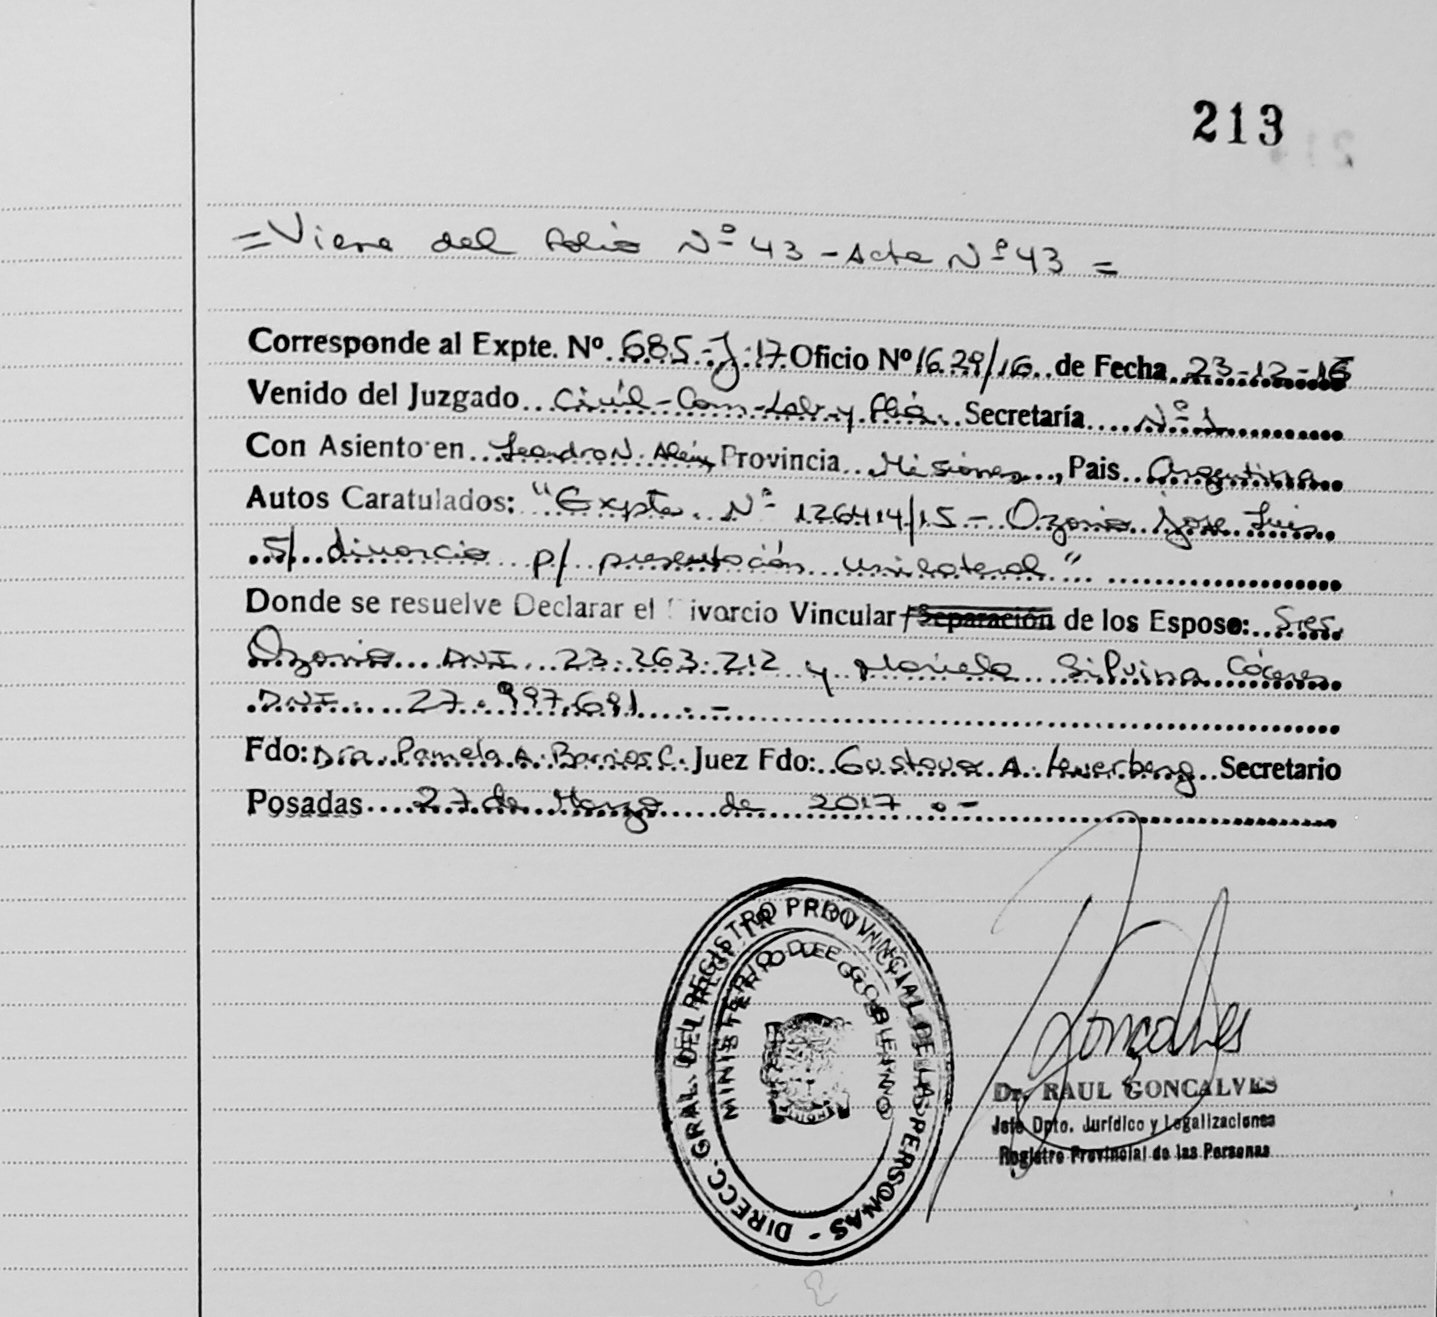 213
= Viene del folio Nº 43 - Acta Nº 43 =
Corresponde al Expte. Nº 685-J-17 Oficio Nº 1629/16 de Fecha 23-12-16
Venido del Juzgado Civil-Com-Lab. y Flia. Secretaría Nº 1
Con Asiento en Leandro N. Alem, Provincia Misiones, Pais Argentina
Autos Caratulados: "Expte. Nº 126414/15 - Ozorio Jose Luis
s/ divorcio p/ presentación unilateral"
Donde se resuelve Declarar el Divorcio Vincular/Separación de los Esposo: Sres.
Ozorio DNI 23.263.212 y Mariela Silvina Cáceres
DNI 27.997.681.-
Fdo: Dra. Pamela A. Barrios C. Juez Fdo: Gustavo A. Secretario
Posadas 27 de Marzo de 2017.-
DIRECC. GRAL. DEL REGISTRO PROVINCIAL DE LAS PERSONAS -
MINISTERIO DE GOBIERNO
Goncalves
Dr. RAUL GONCALVES
Jefe Dpto. Jurídico y Legalizaciones
Registro Provincial de las Personas